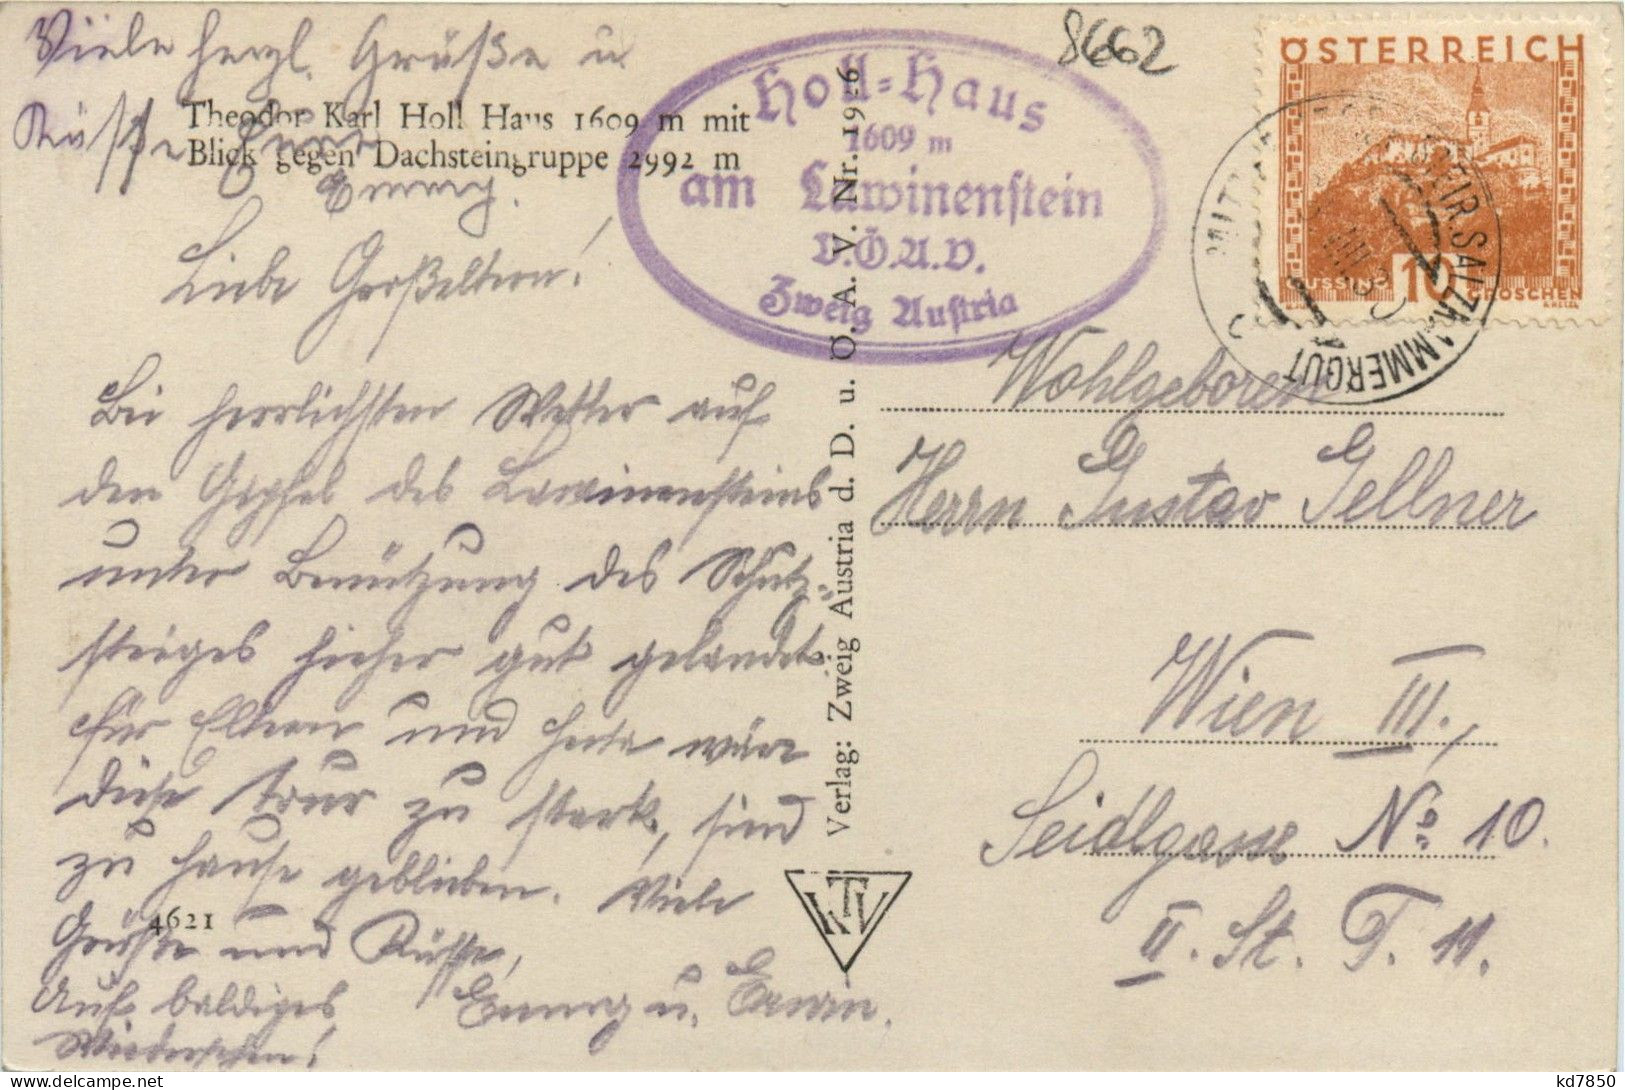 Viele herzl. Grüße u.
Küsse
Emmy.
Theodor Karl Holl Haus 1609 m mit
Blick gegen Dachsteingruppe 2992 m
Liebe Großeltern!
Bei herrlichsten Wetter auf
den Gipfel des Lawinensteins
unter Benützung des Schutz-
steiges hieher gut gelandet.
Für Eltern und Herta wäre
diese Tour zu stark, sind
zu Hause geblieben. Viele
Grüße und Küsse,
Emmy u. Erwin.
Auf baldiges
Wiedersehen!
4621
Holl-Haus
1609 m
am Lawinenstein
D.Ö.A.V.
Zweig Austria
Verlag: Zweig Austria d. D. u. Ö. A. V. Nr. 1926
KTV
8662
ÖSTERREICH
10
GROSCHEN
STEIR. SALZKAMMERGUT
Wohlgeboren
Herrn Gustav Gellner
Wien III.,
Seidlgasse No 10.
II. St. T. 11.
kd7850